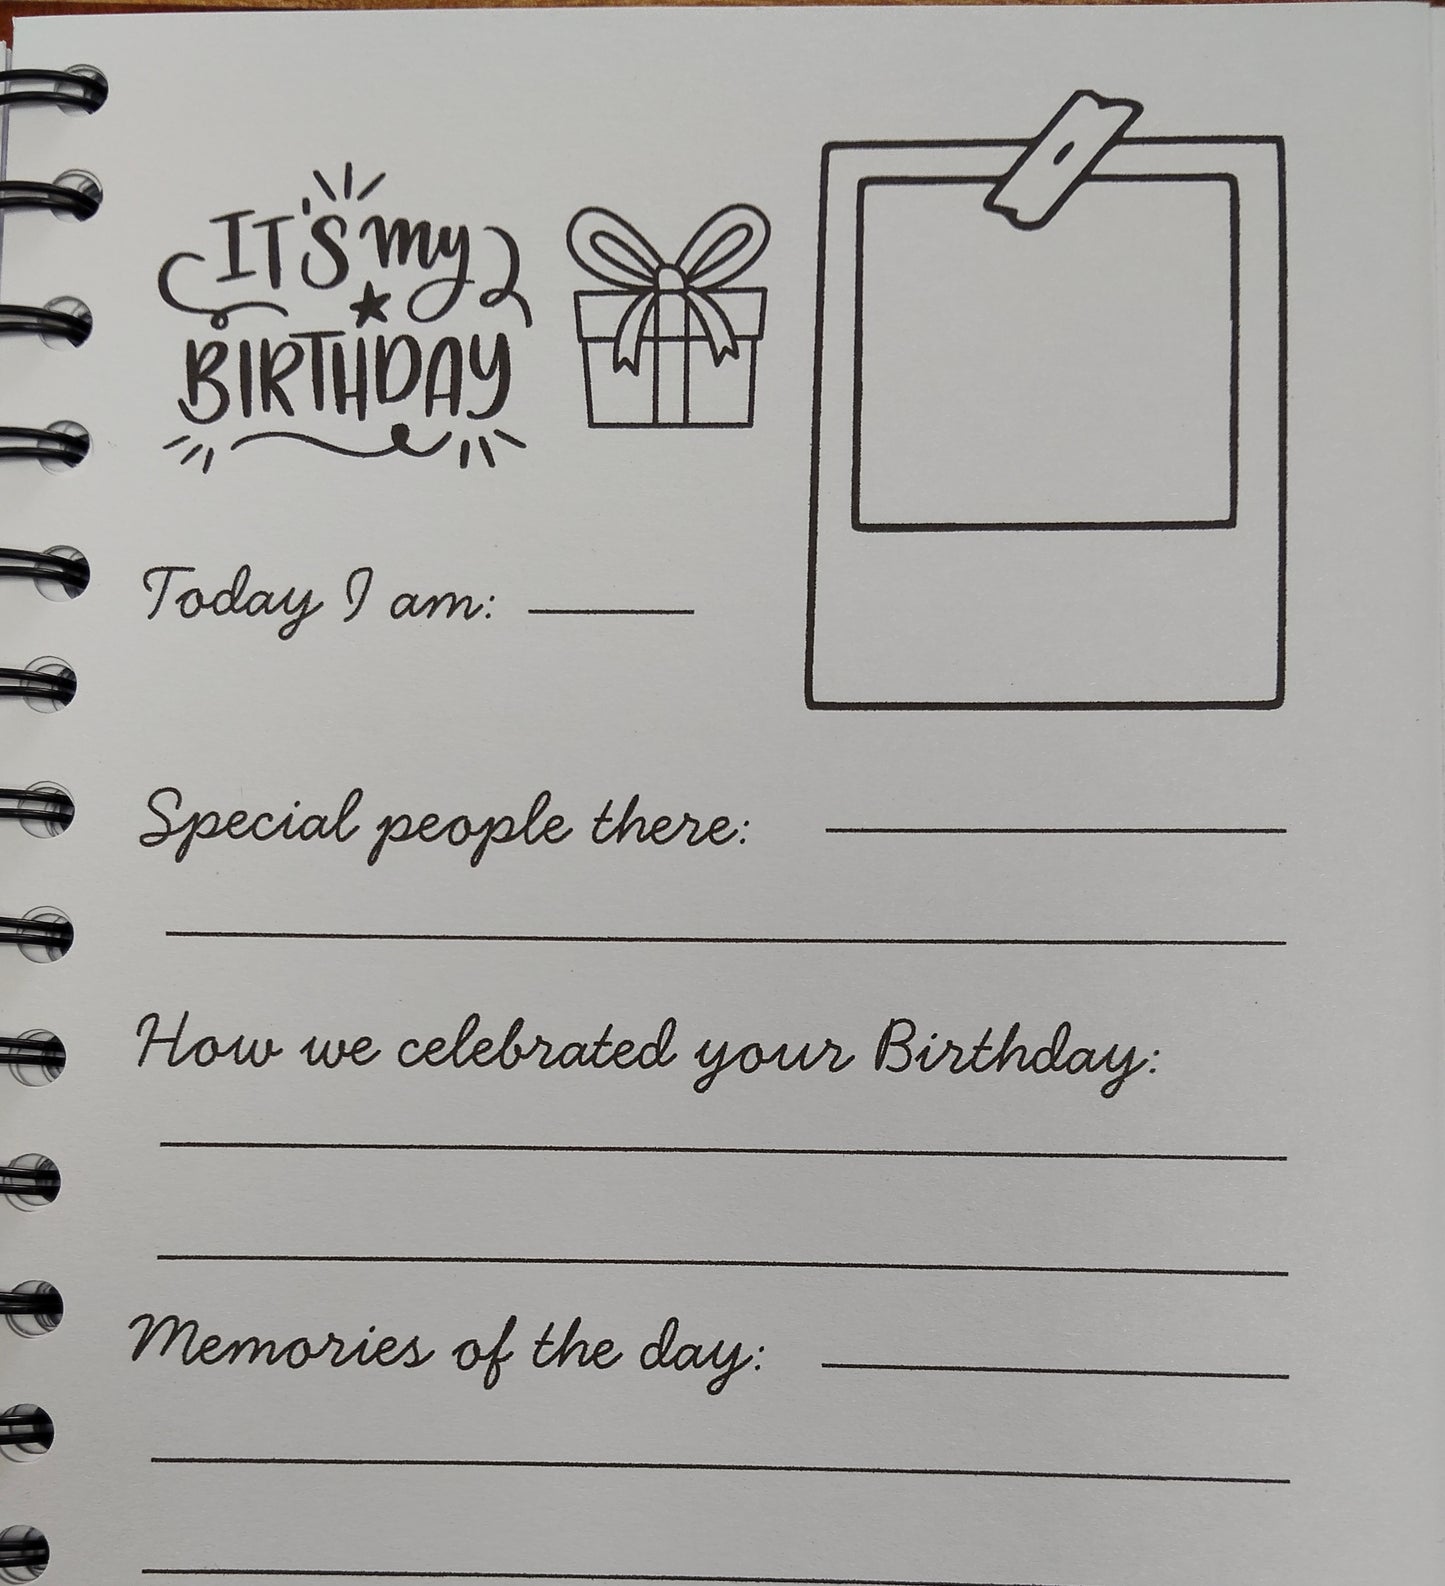 IT'S my
BIRTHDAY
Today I am:
Special people there:
How we celebrated your Birthday:
Memories of the day: